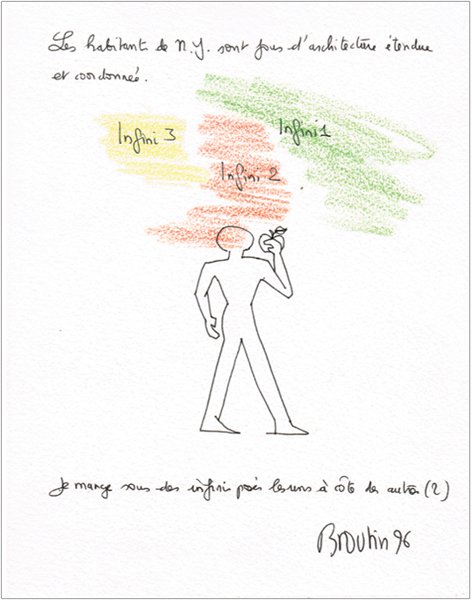 Les habitant de N.Y. sont fous d'architecture étendue
et coordonnée.
Infini 3
Infini 1
Infini 2
Je mange sous des infini posés les uns à côté des autres (2)
Broutin 96